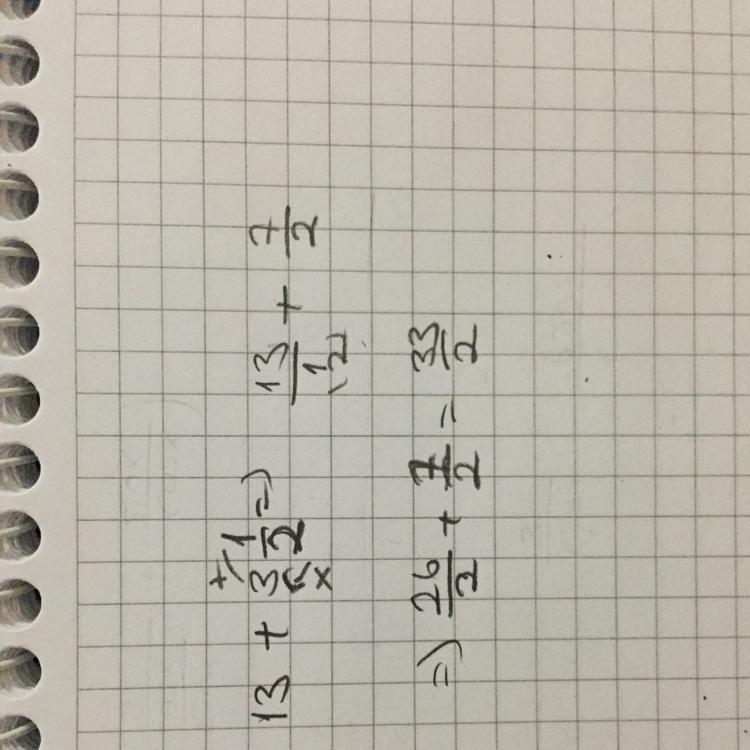 13 + 3 1/2 => 13/1 + 7/2
+ x (2)
=> 26/2 + 7/2 = 33/2